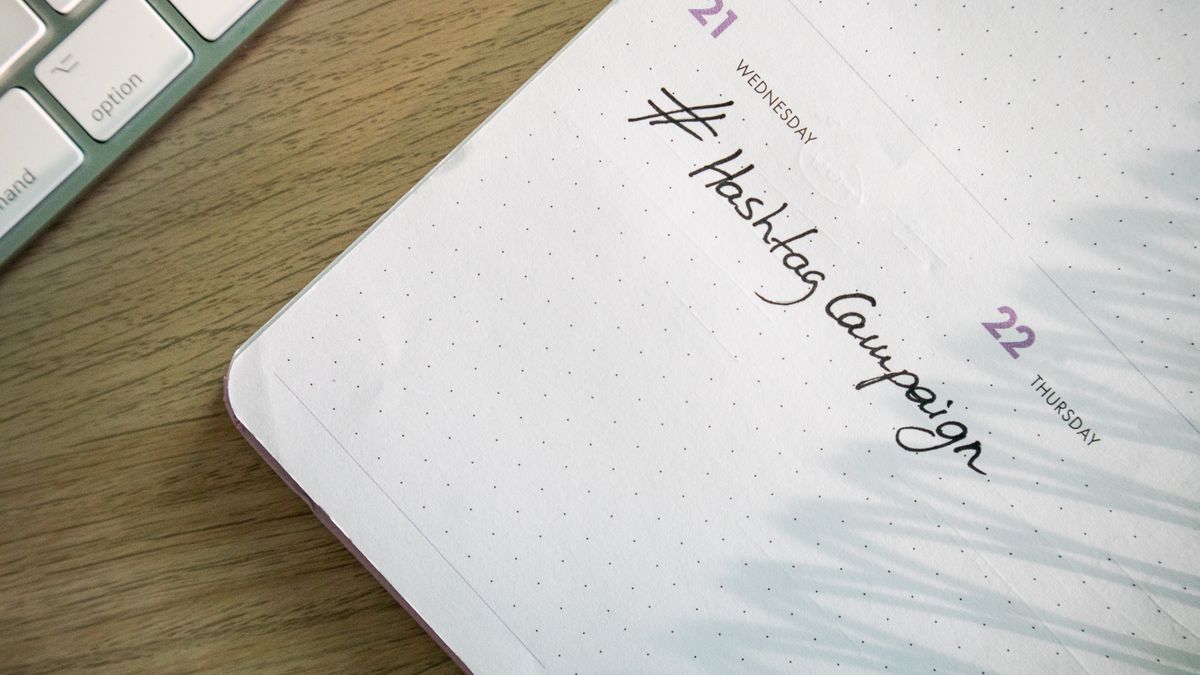 option
21
WEDNESDAY
# Hashtag Campaign
22
THURSDAY